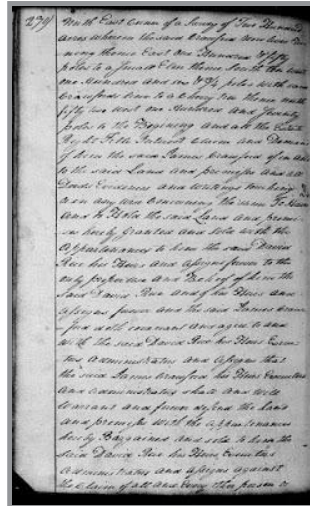 279
North East corner of a Survey of Two Hundred
acres wherein the said Crawford now lives
thence East one Hundred & fifty
poles to a small Elm thence South
one Hundred and six & 3/4 poles with said
Crawfords line to a thence north
fifty two west one Hundred and Seventy
poles to the Begining and all the Estate
Right Title Interest Claim and Demand
of him the said James Crawford of in and
to the said Land and premises and all
Deeds Evidences and Writings touching
or in any wise Concerning the same To Have
and to Hold the said Land and premi-
ses hereby granted and sold with the
Appurtenances to him the said David
Rice his Heirs and assigns forever to the
only proper use and Behoof of him the
said David Rice and of his Heirs and
assigns forever and the said James Craw-
ford doth covenant and agree to and
with the said David Rice his Heirs Execu-
tors Administrators and assigns that
the said James Crawford his Heirs Executors
and administrators shall and will
warrant and forever defend the land
and premises with the appurtenances
hereby Bargained and sold to him the
said David Rice his Heirs Executors
administrators and assigns against
the Claim of all and Every other person or